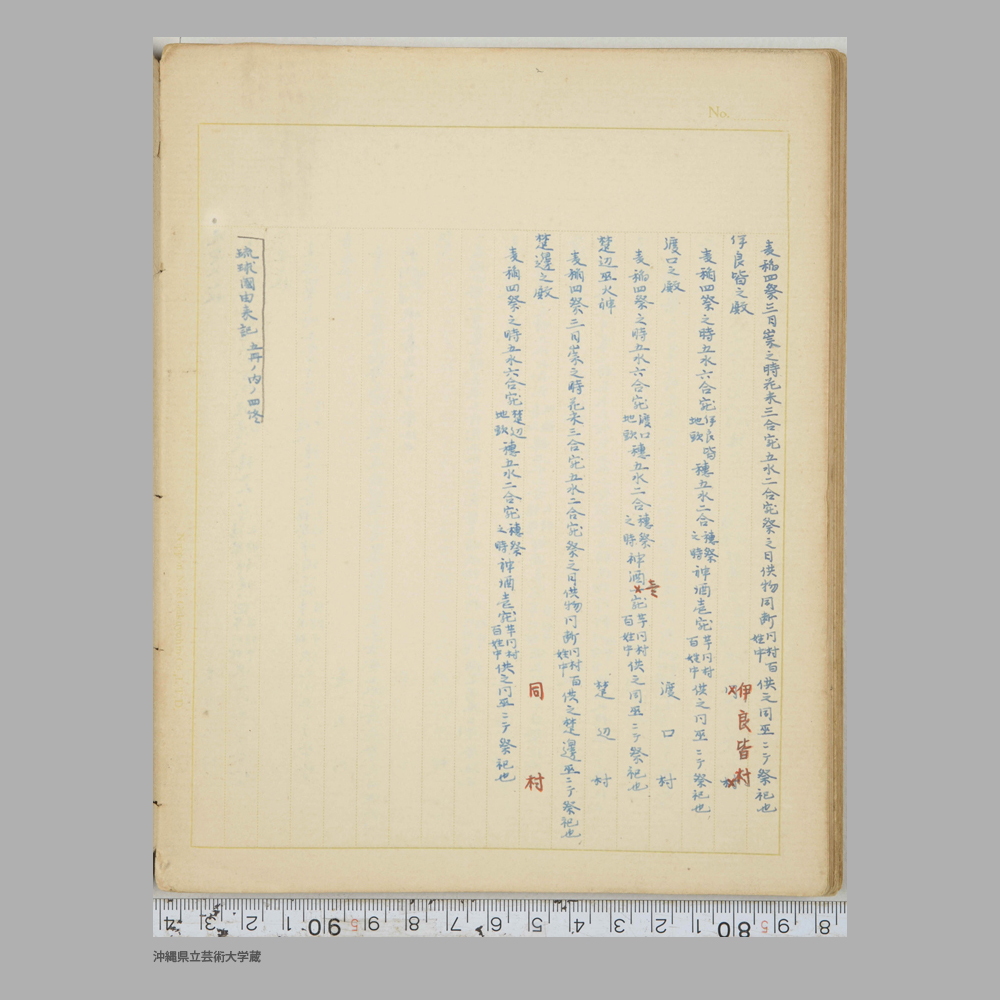 No.
麦稲四祭三月崇之時花米三合宛五水二合宛祭之日供物同断同村百姓中供之同巫ニテ祭祀也
伊良皆之殿 伊良皆村
麦稲四祭之時五水六合宛伊良皆地頭穂五水二合穂祭之時神酒壱宛芋同村百姓中供之同巫ニテ祭祀也
渡口之殿 渡口村
麦稲四祭之時五水六合宛渡口地頭穂五水二合穂祭之時神酒壱宛芋同村百姓中供之同巫ニテ祭祀也
楚辺巫火神 楚辺村
麦稲四祭三月崇之時花米三合宛五水二合宛祭之日供物同断同村百姓中供之楚邊巫ニテ祭祀也
楚邊之殿 同村
麦稲四祭之時五水六合宛楚辺地頭穂五水二合宛穂祭之時神酒壱宛芋同村百姓中供之同巫ニテ祭祀也
琉球國由来記 五冊ノ内ノ四
4 3 2 1 90 5 9 8 7 6 5 4 3 2 1 80 5 9 8
沖縄県立芸術大学蔵